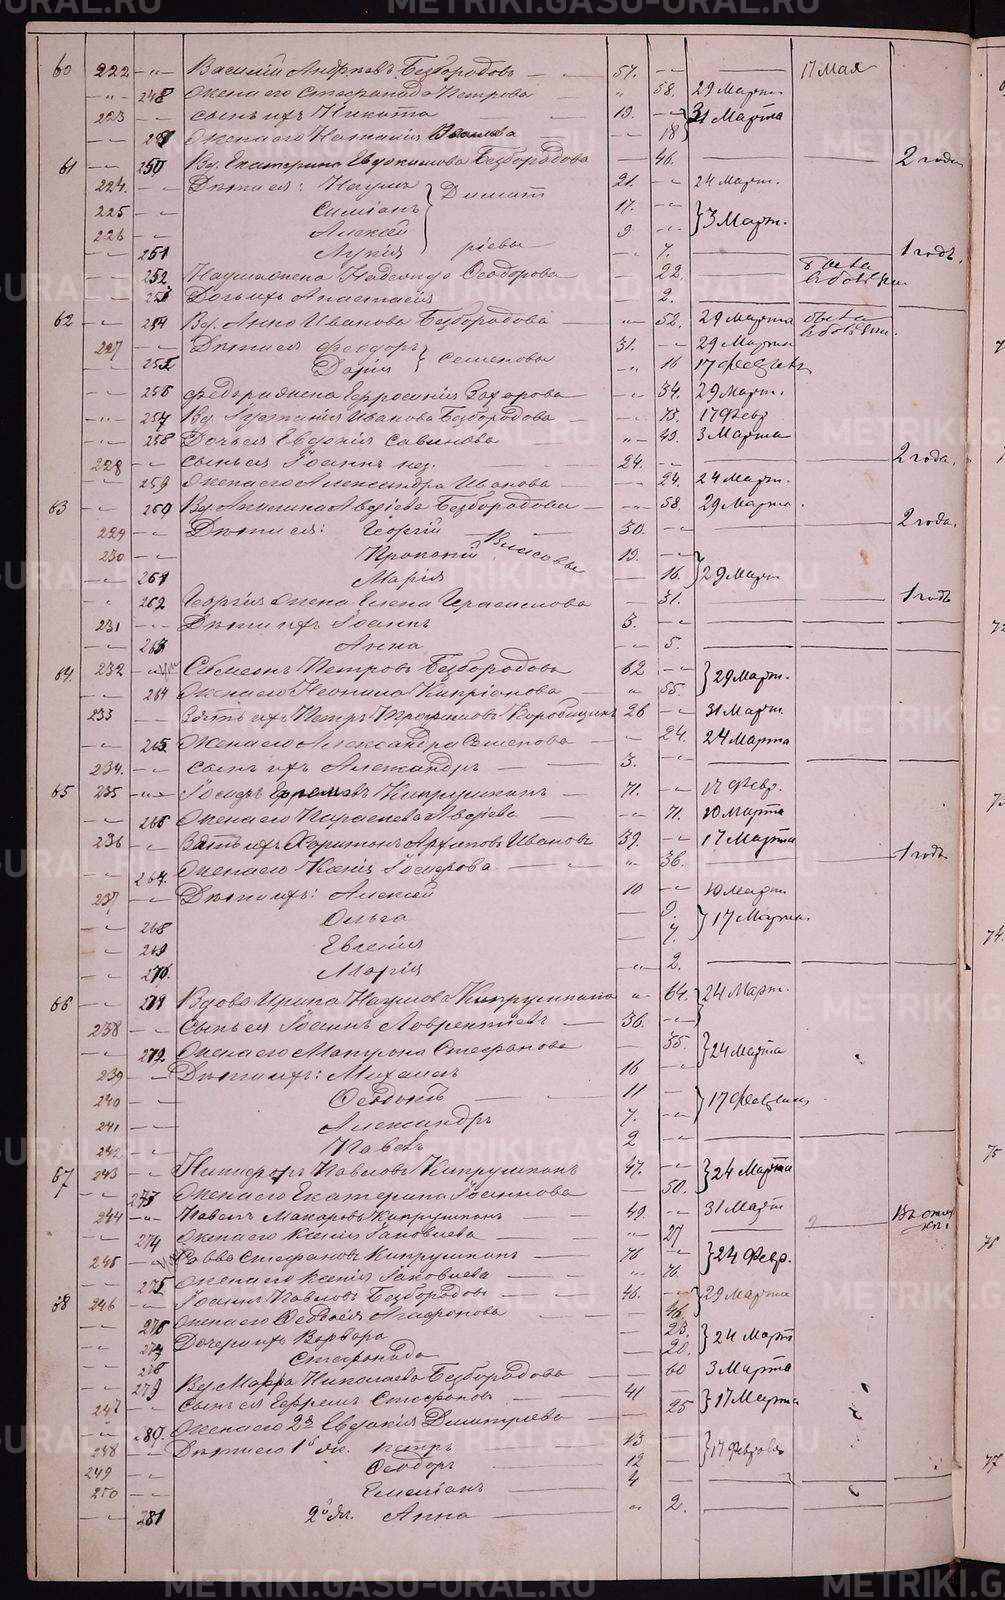 60 222 -"- Василий Андреевъ Безбородовъ 57. 17 Мая
248 Жена его Стефанида Петрова 58. 29 Марта
223 Сынъ ихъ Никита 19. 31 Марта
Жена его Наталия 18
61 250 Вд. Екатерина Евдокимова Безбородова 46. 2 года
224. Дѣти ея: Наумъ 21. 24 Март.
225 Симеонъ 17. 3 Март.
226 Алексей 9
251 Лукія 7. 1 годъ.
252 Наума жена Надежда Ѳеодорова 22.
253 Дочь ихъ Анастасия 2.
62 254 Вд. Анна Иванова Безбородова 52. 29 Марта
227 Дѣти ея Феодоръ Семеновы 31. 29 Марта
255 Дарія 16 17 Феврал.
256 Федора жена Ефросинія Захарова 34. 29 Март.
257 Вд. Иванова Безбородова 73. 17 Февр
258 Дочь ея Евдокія Савинова 49. 3 Марта
228 Сынъ ея Іоаннъ нез. 24. 2 года.
259 Жена его Александра Иванова 24. 24 Март.
63 260 Вд. Безбородова 58. 29 Марта.
229 Дѣти ея: Георгій 30. 2 года.
230 Прокопій 19.
261 Марія 16. 29 Март
262 Георгія жена Елена Герасимова 31. 1 годъ
231 Дѣти ихъ Іоаннъ 3.
263 Анна 5.
64. 232 Симеонъ Петровъ Безбородовъ 62 29 Март.
264 Жена его Неонила Кипріанова 55.
233 Зять ихъ Петръ Трофимовъ Коробицинъ 26 31 Март
265 Жена его Александра Семенова 24. 24 Марта
234. Сынъ ихъ Александръ 3.
65 235 Іосифъ Ефремовъ Кипрушкинъ 71. 17 Февр.
266 Жена его Параскева 71. 10 Марта
236 Зять ихъ Харитонъ Архиповъ Ивановъ 39. 17 Марта
267. Жена его Ксенія Іосифова 36. 1 годъ
237 Дѣти ихъ: Алексей 10 10 Март.
268 Ольга 9. 17 Марта.
269 Евгенія 7.
270. Марія 2.
66 271 Вдова Ирина Наумова Кипрушкина 64. 24 Март.
238 Сынъ ея Іоаннъ Лаврентьевъ 36.
272 Жена его Матрона Стефанова 35. 24 Марта
239 Дѣти ихъ: Михаилъ 16
240 Ѳедотъ 11 17 Февраля
241 Александръ 7.
242 Павелъ 2
67 243 Никифоръ Павловъ Кипрушкинъ 47. 24 Марта
273 Жена его Екатерина Іоаннова 50.
244 Павелъ Макаровъ Кипрушкинъ 49. 31 Март
274 Жена его Ксенія Іаковлева 27
245 Савва Стефановъ Кипрушкинъ 76 24 Февр.
275 Жена его Ксенія Іаковлева 76.
68 246 Іоаннъ Павловъ Безбородовъ 46. 29 Марта
276 Жена его Агафонова 46.
277 Дочери ихъ Варвара 23. 24 Март
278 Стефанида 20.
279 Вд. Марфа Николаева Безбородова 60 3 Марта
247 Сынъ ея Ефремъ Стефановъ 41 17 Марта
280. Жена его 2я Евдокія Димитріева 25
248 Дѣти его 1й ж. Петръ 13 17 Февраля
249 Ѳеодоръ 12
250 Емеліанъ 4
281 2й ж. Анна 2.
METRIKI.GASO-URAL.RU